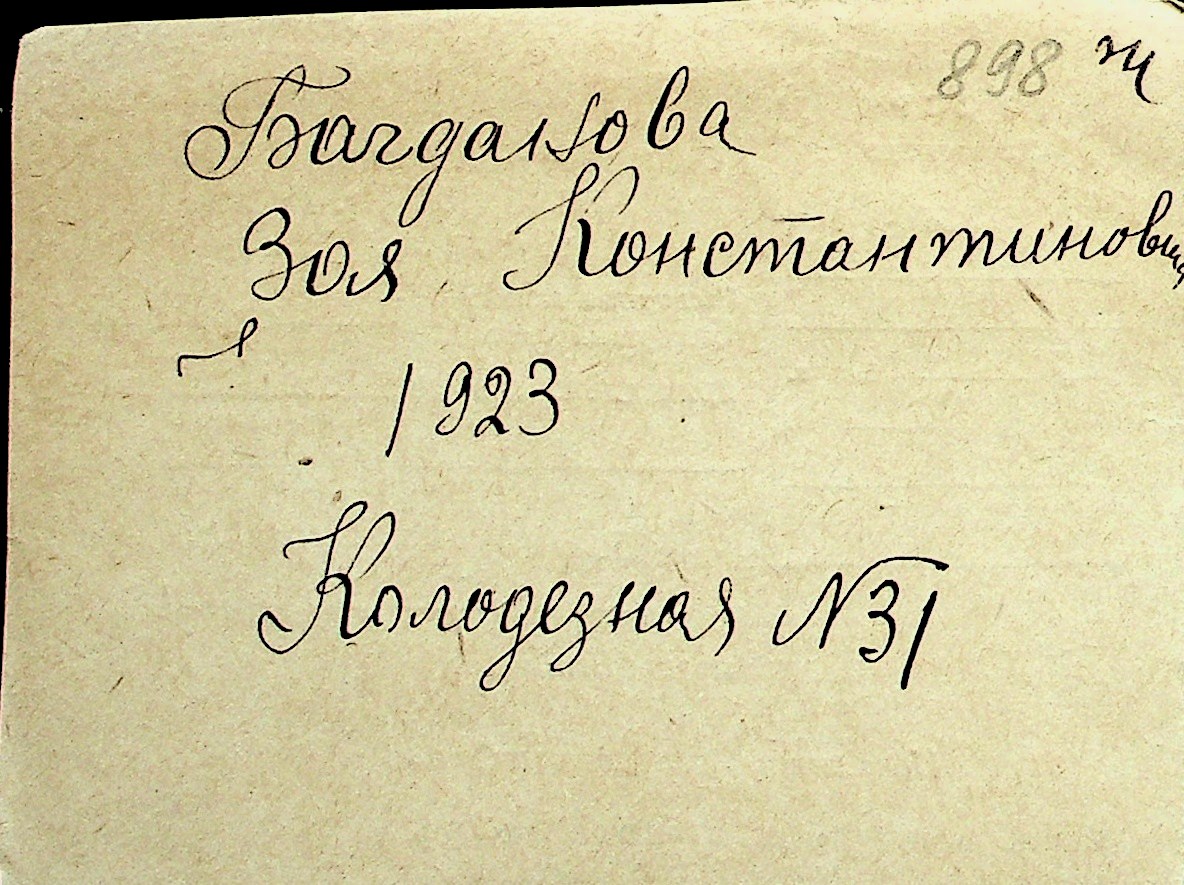 898 ж
Багданова
Зоя Константиновна
1923
Колодезная №31